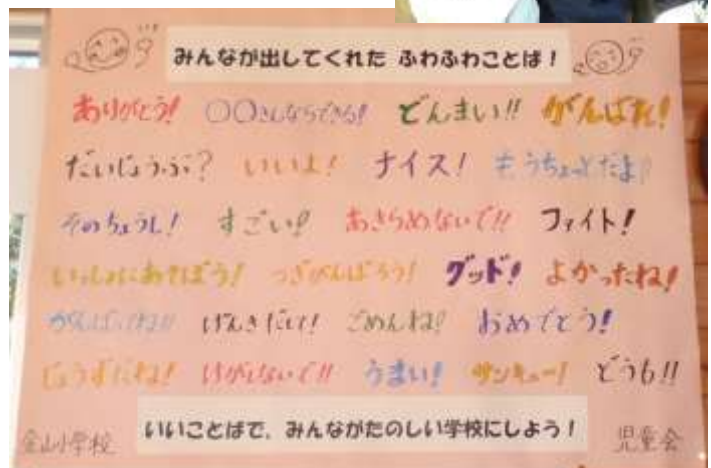 みんなが出してくれた ふわふわことば！
ありがとう! ○○さんならできる! どんまい!! がんばれ!
だいじょうぶ? いいよ! ナイス! もうちょっとだよ!
そのちょうし! すごい! あきらめないで!! ファイト!
いっしょにあそぼう! つぎがんばろう! グッド! よかったね!
がんばってね!! げんきだして! ごめんね! おめでとう!
じょうずだね! けがしないで!! うまい! サンキュー! どうも!!
いいことばで、みんながたのしい学校にしよう！
金山小学校 児童会